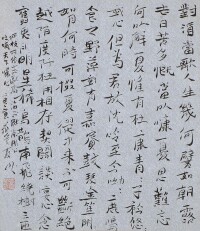 對酒當歌人生幾何譬如朝露
去日苦多慨當以慷憂思難忘
何以解憂唯有杜康青青子衿悠
悠我心但為君故沈吟至今呦呦鹿鳴
食野之苹我有嘉賓鼓瑟吹笙明明
如月何時可掇憂從中來不可斷絕
越陌度阡枉用相存契闊談讌心念
舊恩月明星稀烏鵲南飛繞樹三匝